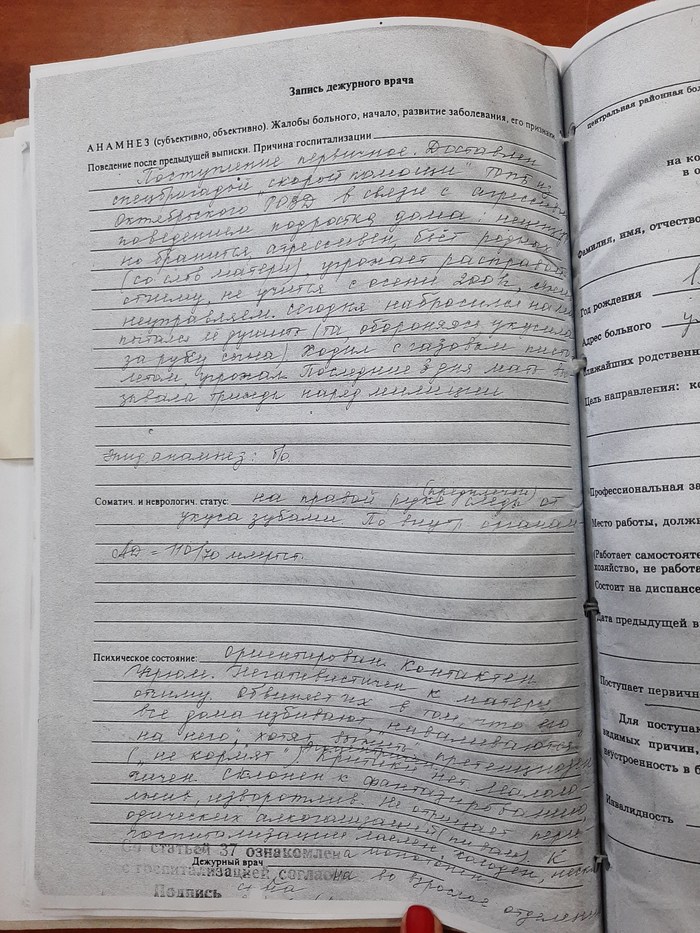 Запись дежурного врача
АНАМНЕЗ (субъективно, объективно). Жалобы больного, начало, развитие заболевания, его признаки
Поведение после предыдущей выписки. Причина госпитализации
Поступление первичное. Доставлен
спецбригадой "скорой помощи"
Октябрьского РОВД в связи с агрессивн
поведением подростка дома:
но бранится, агрессивен, бьёт родных
(со слов матери), угрожает расправой
отчиму, не учится с осени
неуправляем. Сегодня набросился на
пытался её душить (та, обороняясь укусила
за руку сына) Ходил с газовым писто
летом, угрожал. Последние 3 дня мать вы
зывала трижды наряд милиции
Эпиданамнез: б/о.
Соматич. и неврологич. статус: на правой руке (предплечье) следы от
укуса зубами. По внутр органам
АД = 110/70 мм рт ст.
Психическое состояние: Ориентирован. Контактен
Угрюм. Негативистичен к матери
отчиму. Обвиняет их в том, что его
все дома избивают, "наваливаются
на него", хотят
("не кормят") Критики нет.
Склонен к фантазированию,
изворотлив. Не отрицает пери
одические алкоголизации (пиво). К
госпитализации
Со статьей 37 ознакомлена
Дежурный врач
с госпитализацией согласна
во взрослое отделен
Подпись
центральная районная бол
на ко
в о
Фамилия, имя, отчество
Год рождения
Адрес больного
ближайших родственн
Цель направления: ко
Профессиональная за
Место работы, долж
(Работает самостояте
хозяйство, не работа
Состоит на диспансе
Дата предыдущей в
Поступает первичн
Для поступа
видимых причин,
неустроенность в б
Инвалидность